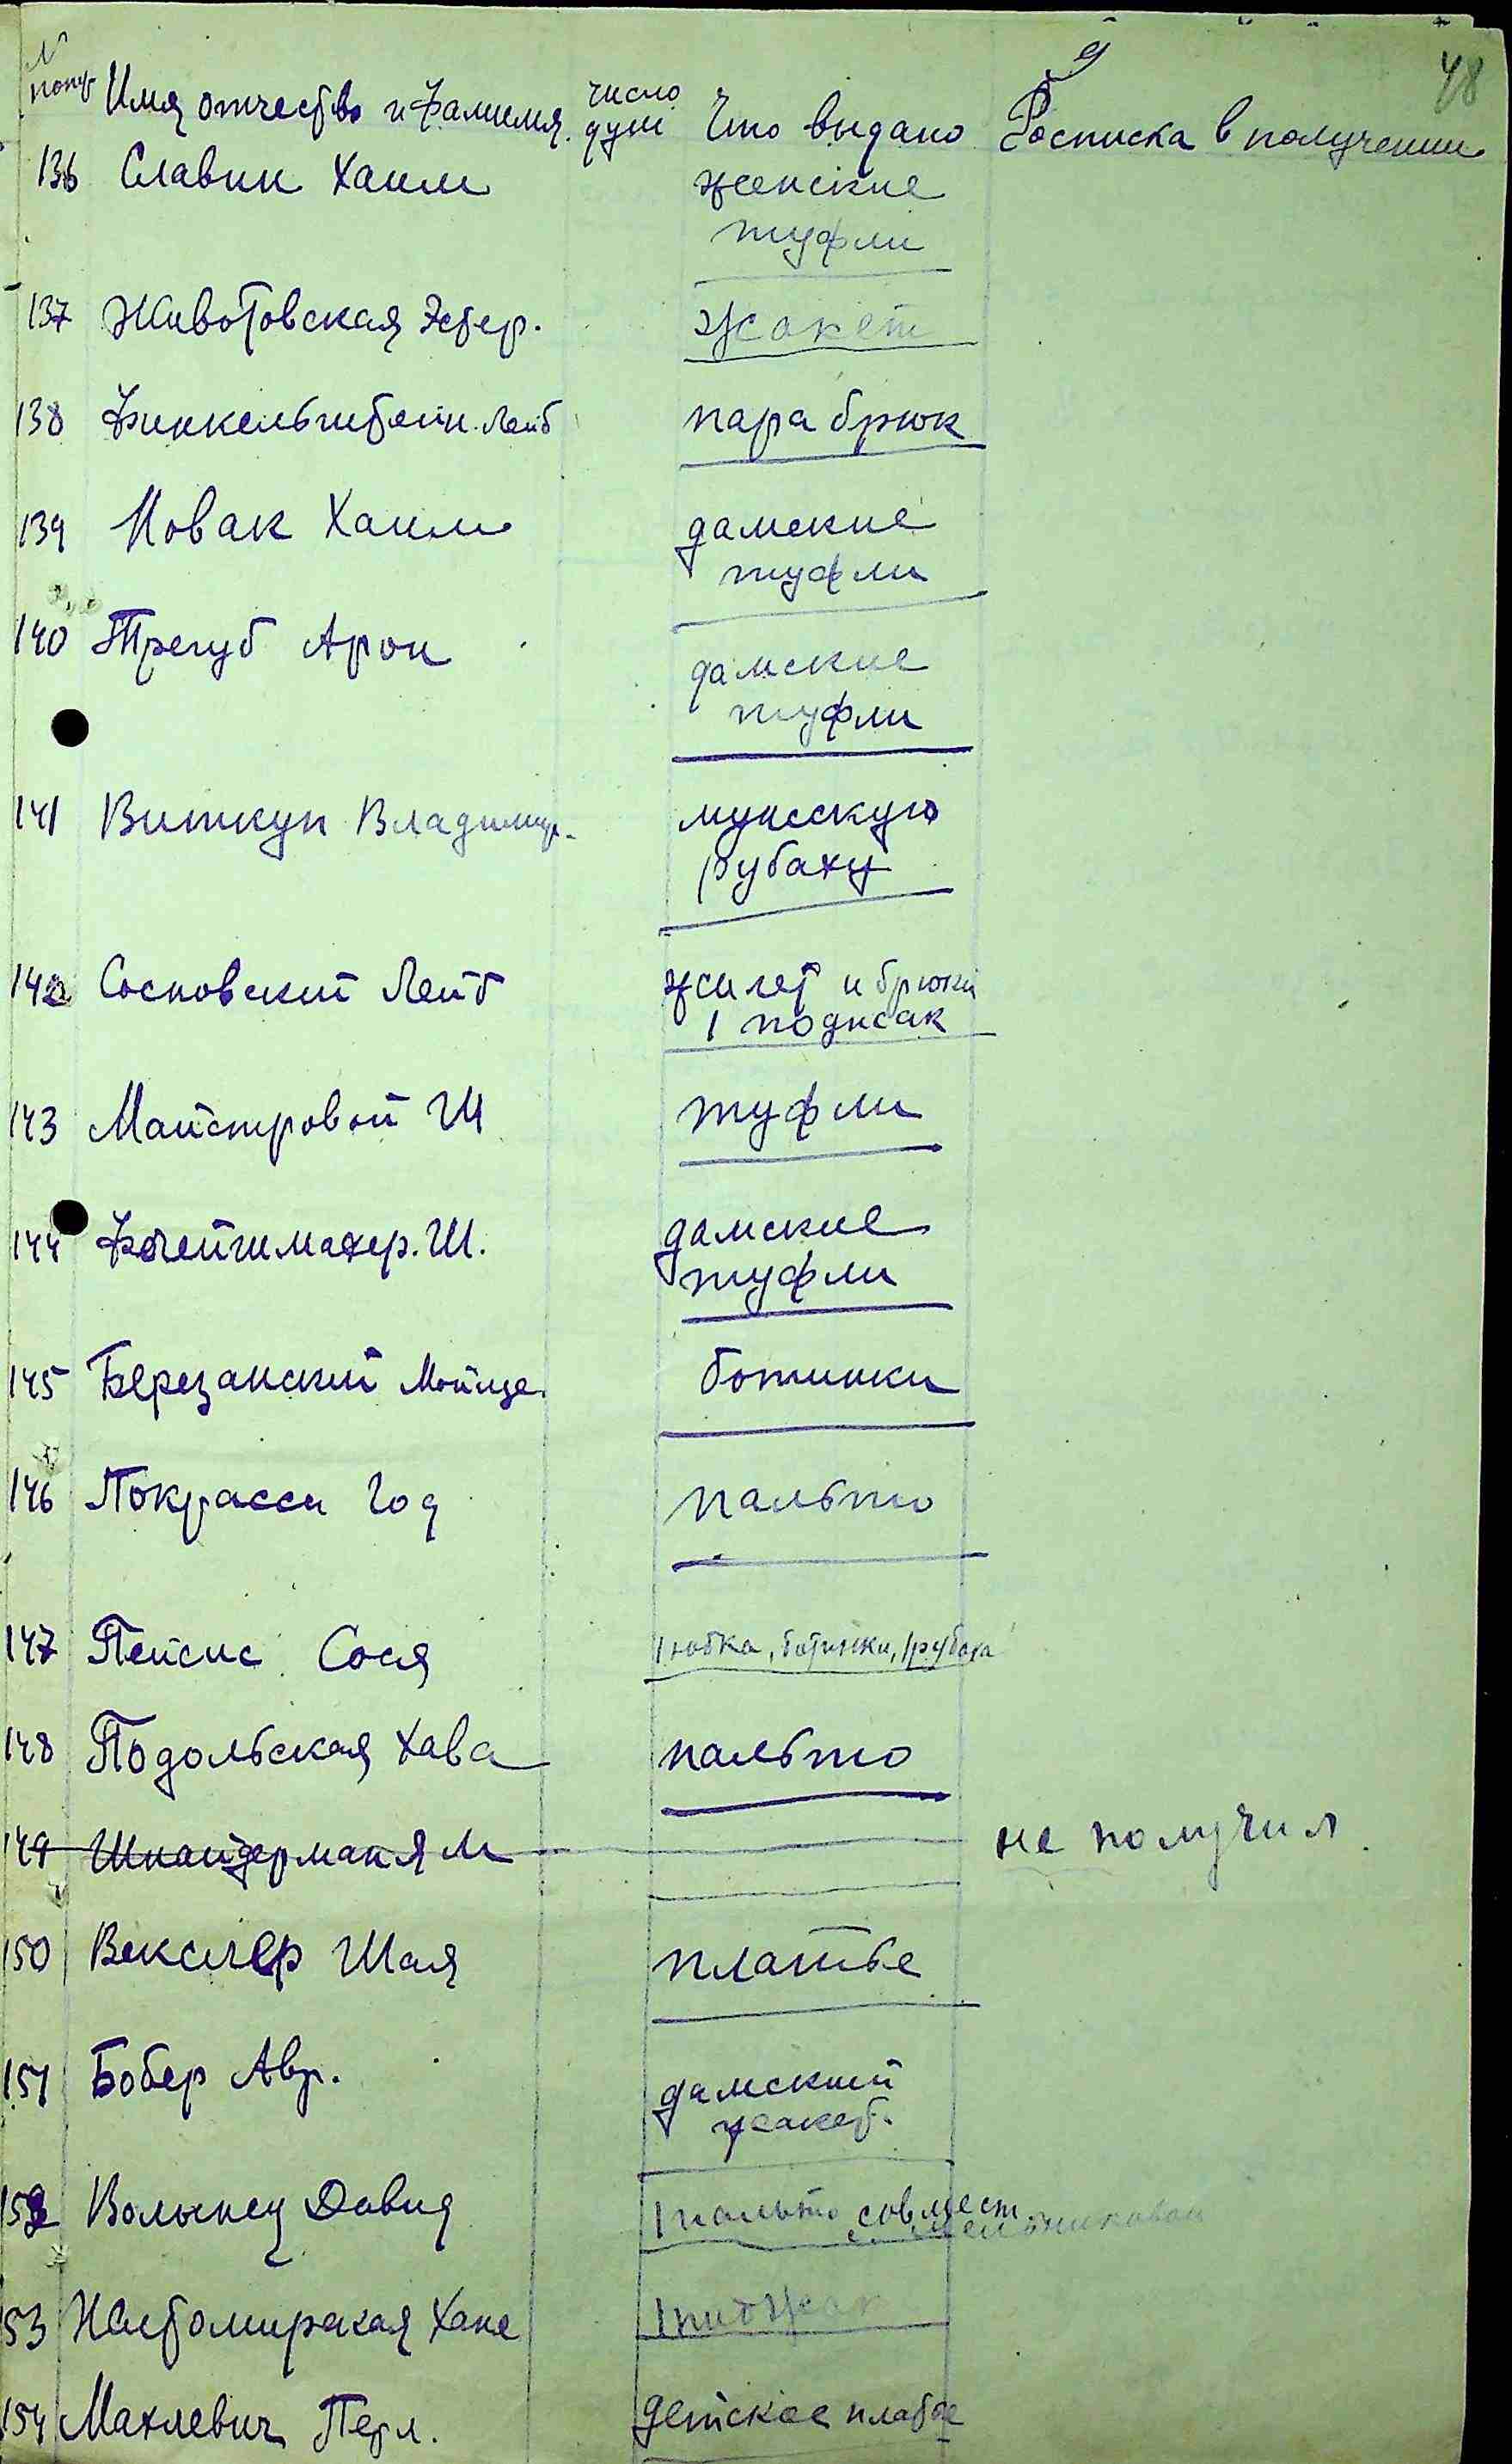 9
48
N
попр Имя отчество и фамилия. число душ Что выдано Росписка в получении
136 Славин Хаим женские
туфли
137 Животовская Эстер. жакет
138 Финкельштейн Лейб пара брюк
139 Новак Хаим дамские
туфли
140 Трегуб Арон дамские
туфли
141 Виткуп Владимир. мужскую
рубаху
142 Сосновский Лейб жилет и брюки
1 поджак
143 Майстровой Ш туфли
144 Ш. дамские
туфли
145 Березанский Мойше. ботинки
146 Покрасса Год пальто
147 Пейсис Сося 1 юбка, ботинки, 1 рубаха
148 Подольская Хава пальто
149 Шнайдерман Я М не получил
150 Векслер Шая платье
151 Бобер Авр. дамский
жакет.
152 Волынец Давид 1 пальто совмест.
с Мельниковой
153 Хана 1 пиджак
154 Махлевич Перл. детское платье